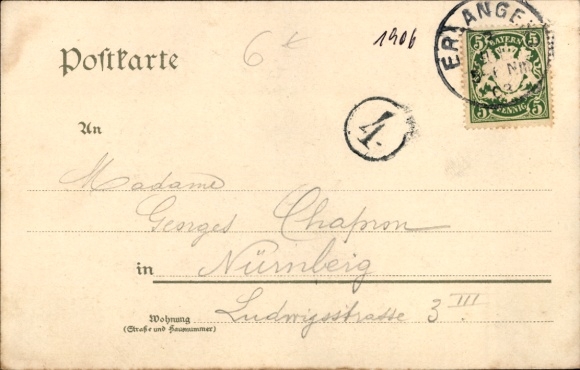 6
1906
ERLANGEN
5 5
BAYERN
5 PFENNIG 5
Postkarte
4.
An
Madame
Georges Chapron
in Nürnberg
Wohnung Ludwigsstrasse 3 III
(Straße und Hausnummer)